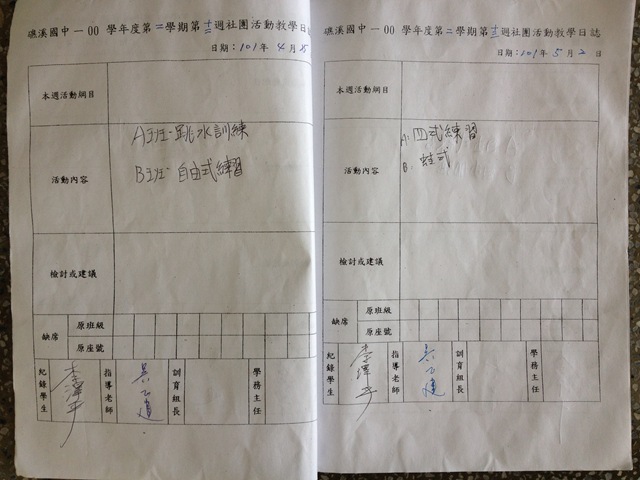 礁溪國中一00 學年度第二學期第十二週社團活動教學日誌
日期：101年 4 月25
本週活動綱目
活動內容
A班：跳水訓練
B班：自由式練習
檢討或建議
缺席
原班級
原座號
紀錄學生
指導老師
訓育組長
學務主任
礁溪國中一00 學年度第二學期第十三週社團活動教學日誌
日期：101年 5 月 2 日
本週活動綱目
活動內容
A：四式練習
B：蛙式
檢討或建議
缺席
原班級
原座號
紀錄學生
指導老師
訓育組長
學務主任